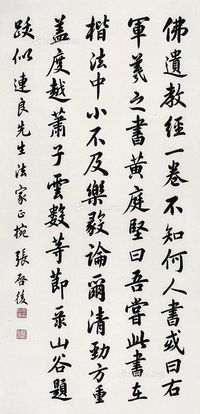 佛遺教經一卷不知何人書或曰右
軍羲之書黃庭堅曰吾嘗此書在
楷法中小不及樂毅論爾清勁方重
蓋度越蕭子雲數等節彔山谷題
跋似連良先生法家正捥張啓後